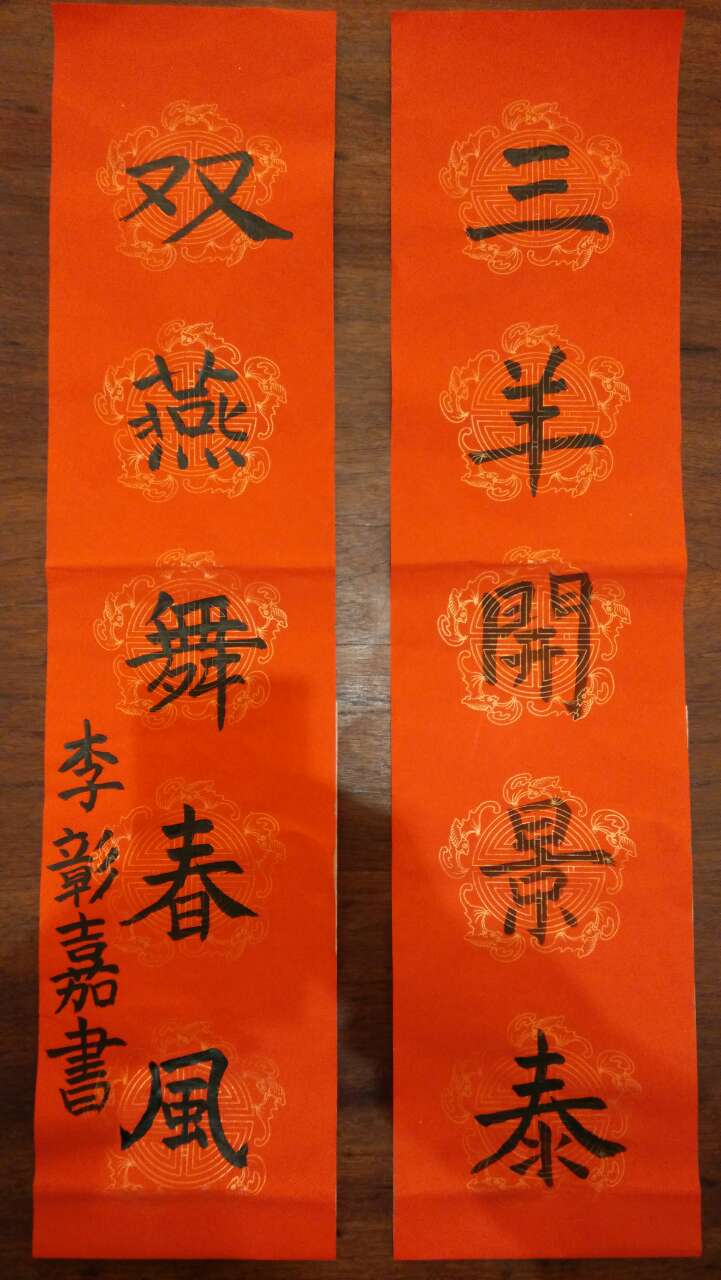 三羊開景泰
双燕舞春風
李彰嘉書